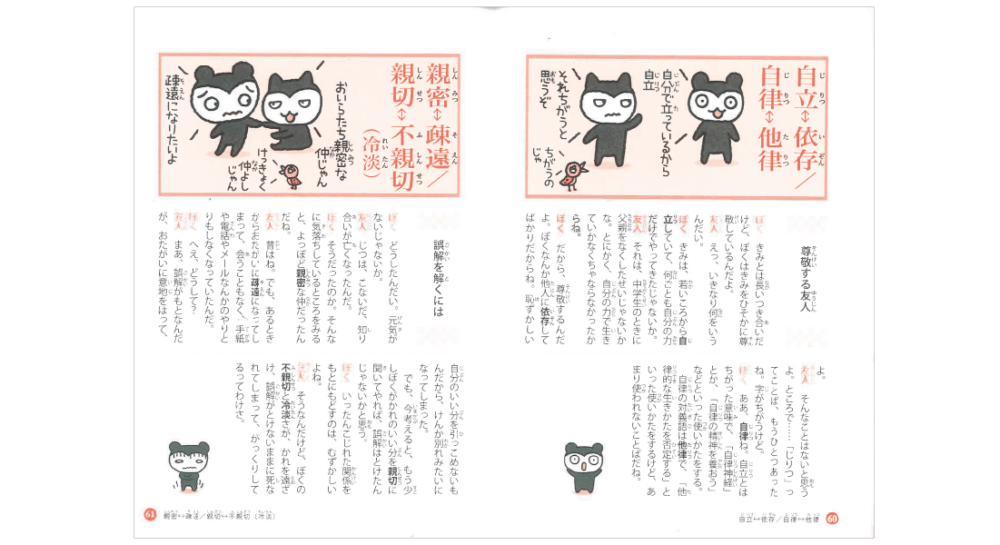 自立↔依存／
自律↔他律
自分で立っているから
自立
それちがうと
思うぞ
ちがうの
じゃ
尊敬する友人
ぼく　きみとは長いつき合いだ
けど、ぼくはきみをひそかに尊
敬しているんだよ。
友人　えっ、いきなり何をいう
んだい。
ぼく　きみは、若いころから自
立していて、何ごとも自分の力
だけでやってきたじゃないか。
友人　それは、中学生のときに
父親をなくしたせいじゃないか
な。とにかく、自分の力で生き
ていかなくちゃならなかったか
らね。
ぼく　だから、尊敬するんだ
よ。ぼくなんか他人に依存して
ばかりだからね。恥ずかしい
よ。
友人　そんなことはないと思う
よ。ところで……「じりつ」っ
てことば、もうひとつあった
ね。字がちがうけど。
ぼく　ああ、自律ね。自立とは
ちがった意味で、「自律神経」
とか、「自律の精神を養おう」
などといった使いかたをする。
自律の対義語は他律で、「他
律的な生きかたを否定する」と
いった使いかたをするけど、あ
まり使われないことばだね。
自立↔依存／自律↔他律
60
親密↔疎遠／
親切↔不親切
（冷淡）
おいらたち親密な
仲じゃん
疎遠になりたいよ
けっきょく
仲よし
じゃん
誤解を解くには
ぼく　どうしたんだい。元気が
ないじゃないか。
友人　じつは、こないだ、知り
合いが亡くなったんだ。
ぼく　そうだったのか。そんな
に気落ちしているところをみる
と、よっぽど親密な仲だったん
だね。
友人　昔はね。でも、あるとき
からおたがいに疎遠になってし
まって、会うこともなく、手紙
や電話やメールなんかのやりと
りもしなくなっていたんだ。
ぼく　へえ、どうして？
友人　まあ、誤解がもとなんだ
が、おたがいに意地をはって、
自分のいい分を引っこめないも
んだから、けんか別れみたいに
なってしまった。
でも、今考えると、もう少
しぼくがかれのいい分を親切に
聞いてやれば、誤解はとけたん
じゃないかと思う。
ぼく　いったんこじれた関係を
もとにもどすのは、むずかしい
よね。
友人　そうなんだけど、ぼくの
不親切と冷淡さが、かれを遠ざ
け、誤解がとけないままに死な
れてしまって、がっくりして
るってわけさ。
61
親密↔疎遠／親切↔不親切（冷淡）